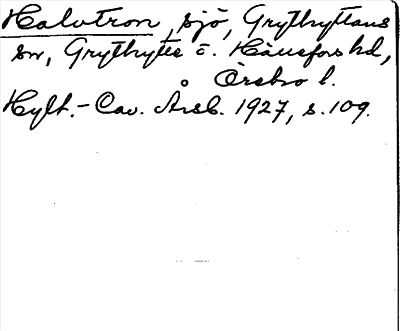 Halvtron, sjö, Grythyttans
sn, Grythytte o. Hällefors hd,
Örebro l.
Hylt.-Cav. Årsb. 1927, s. 109.